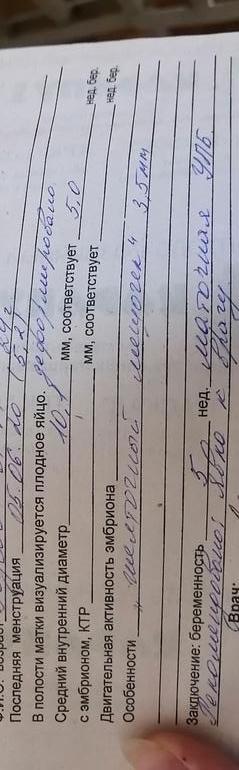 Последняя менструация 05.06.20 (5.2)
В полости матки визуализируется плодное яйцо. деформировано
Средний внутренний диаметр 10, мм, соответствует 5.0 нед. бер.
с эмбрионом, КТР мм, соответствует нед. бер.
Двигательная активность эмбриона
Особенности "желточный мешочек" 3,5 мм
Заключение: беременность 5 нед. маточная УПБ
Рекомендовано: явка к врачу
Врач: